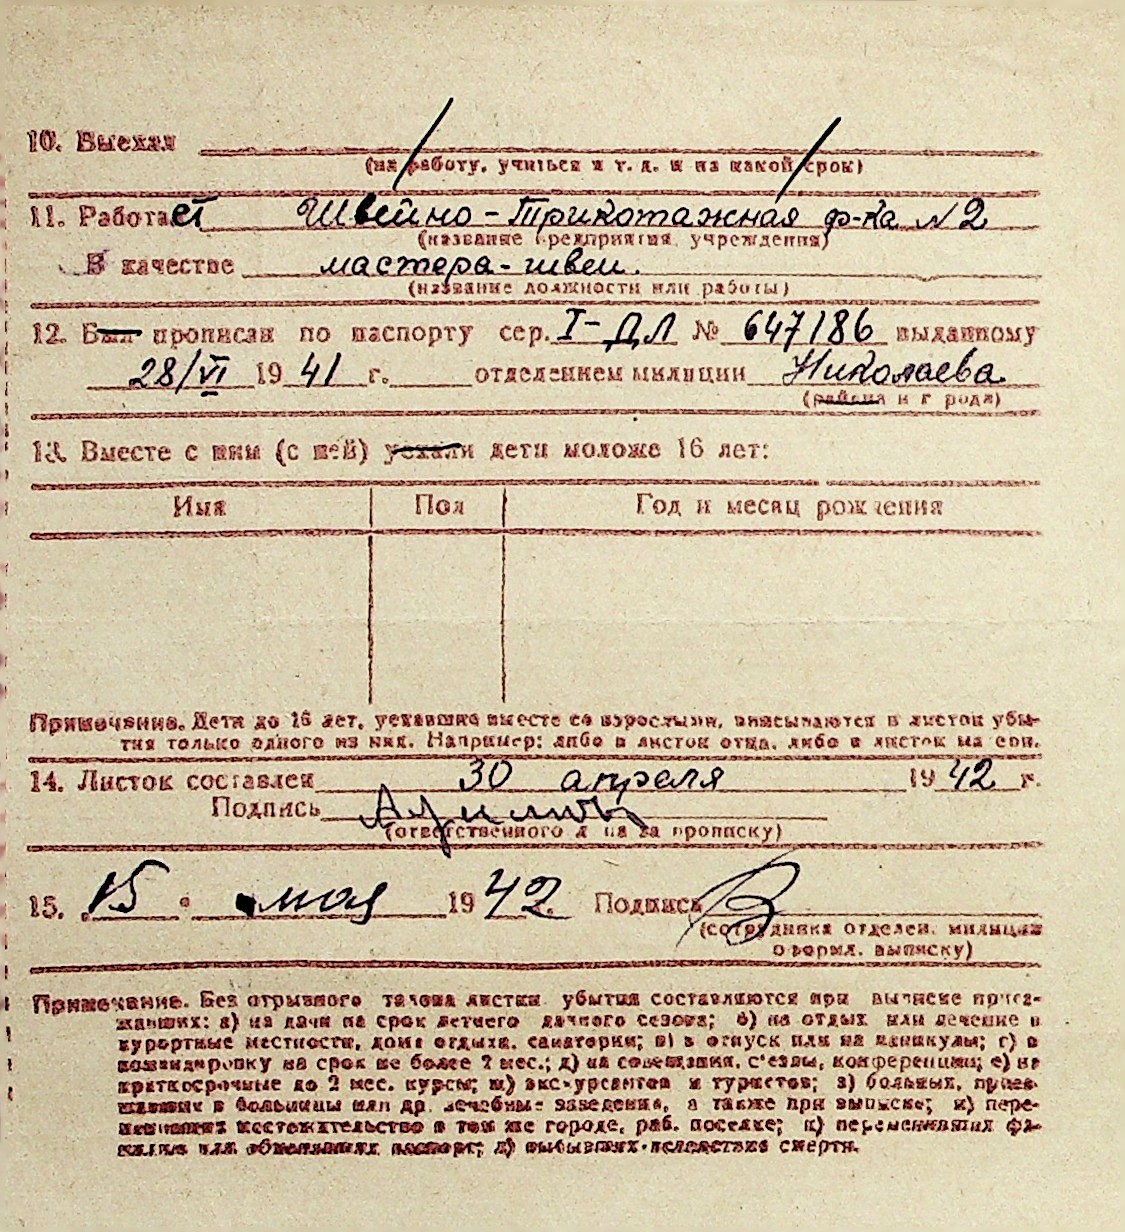 10. Выехал
(на работу, учиться и т. д. и на какой срок)
11. Работает Швейно-Трикотажная ф-ка №2
(название предприятия, учреждения)
В качестве мастера-швеи.
(название должности или работы)
12. Был прописан по паспорту сер. I-ДЛ № 647186 выданному
28/VI 1941 г. отделением милиции Николаева.
(района и г рода)
13. Вместе с ним (с ней) уехали дети моложе 16 лет:
Имя Пол Год и месяц рождения
Примечание. Дети до 16 лет, уехавшие вместе со взрослыми, вписываются в листок убы-
тия только одного из них. Например: либо в листок отца, либо в листок ма ери.
14. Листок составлен 30 апреля 1942 г.
Подпись
(ответственного л ца за прописку)
15. 15 мая 1942 Подпись
(сотрудника отделен. милиции
оформл. выписку)
Примечание. Без отрывного талона листки убытия составляются при выписке приез-
жавших: а) на дачи на срок летнего дачного сезона; б) на отдых или лечение в
курортные местности, дома отдыха, санатории; в) в отпуск или на каникулы; г) в
командировку на срок не более 2 мес.; д) на совещания, с'езды, конференции; е) на
краткосрочные до 2 мес. курсы; ж) экскурсантов и туристов; з) больных, приез-
жавших в больницы или др. лечебные заведения, а также при выписке; и) пере-
менивших местожительство в том же городе, раб. поселке; к) переменивших фа-
милию или обменявших паспорт; л) выбывших вследствие смерти.